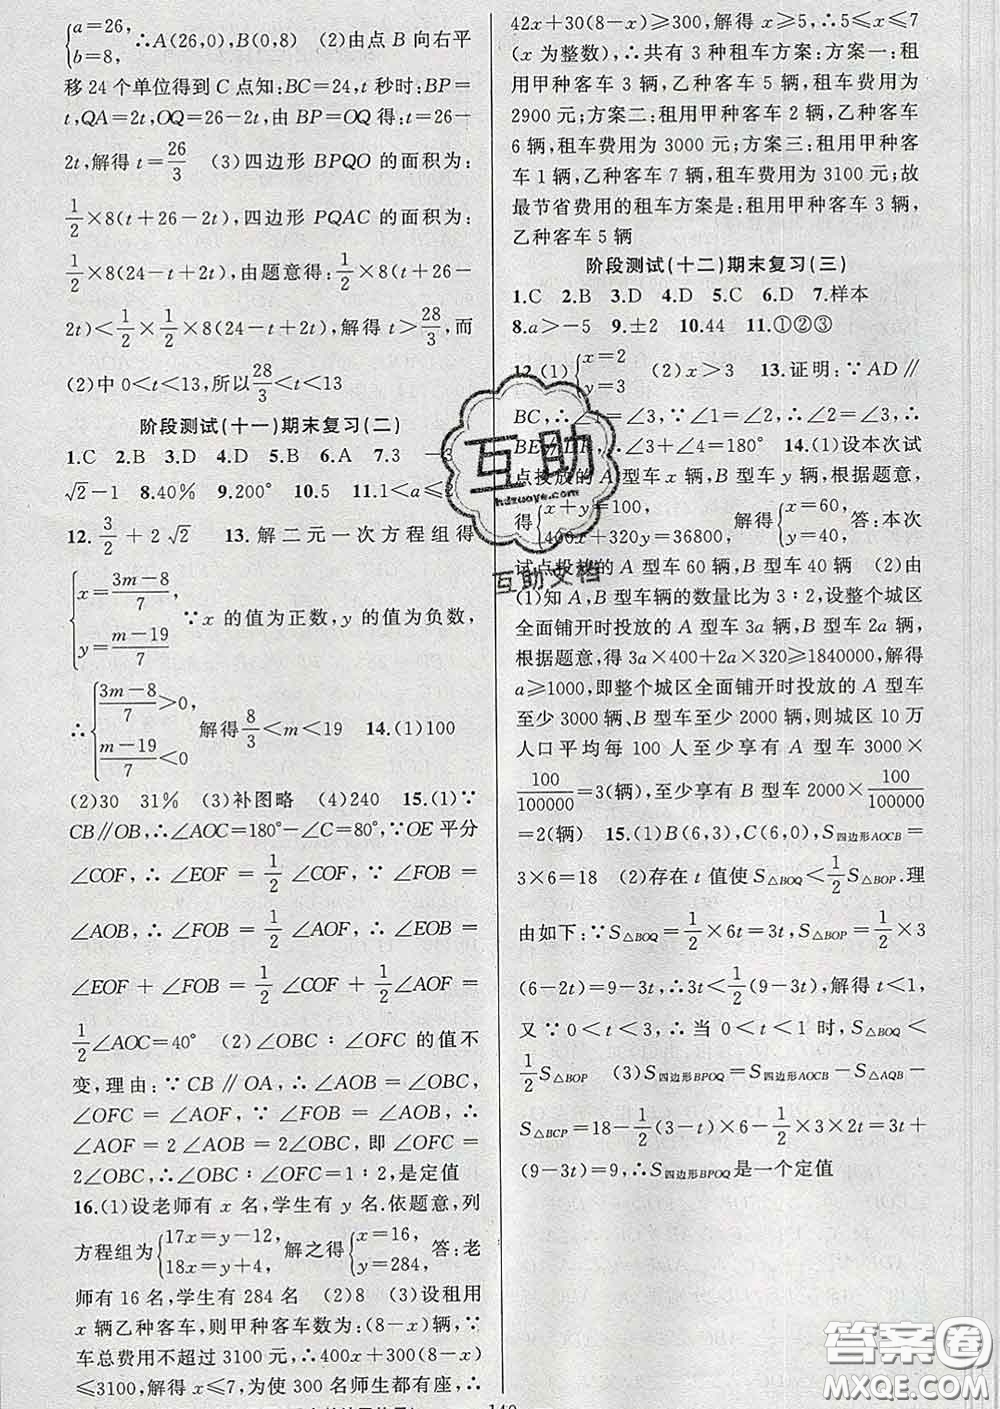 {a=26, b=8, ∴A(26,0),B(0,8) (2)由点 B 向右平
移 24 个单位得到 C 点知:BC=24,t 秒时:BP=
t,QA=2t,OQ=26-2t,由 BP=OQ 得:t=26-
2t,解得 t=26/3 (3)四边形 BPQO 的面积为:
1/2×8(t+26-2t),四边形 PQAC 的面积为:
1/2×8(24-t+2t),由题意得:1/2×8(t+26-
2t)<1/2×1/2×8(24-t+2t),解得 t>28/3,而
(2)中 0<t<13,所以28/3<t<13
阶段测试(十一)期末复习(二)
1.C 2.B 3.D 4.D 5.B 6.A 7.3 -3
√2-1 8.40% 9.200° 10.5 11.1<a≤
12.3/2+2√2 13.解二元一次方程组得
{x=(3m-8)/7, y=(m-19)/7 ∵x 的值为正数,y 的值为负数,
∴{(3m-8)/7>0, (m-19)/7<0 解得8/3<m<19 14.(1)100
(2)30 31% (3)补图略 (4)240 15.(1)∵
CB∥OB,∴∠AOC=180°-∠C=80°,∵OE 平分
∠COF,∴∠EOF=1/2∠COF,∵∠FOB=
∠AOB,∴∠FOB=1/2∠AOF,∴∠EOB=
∠EOF+∠FOB=1/2∠COF+1/2∠AOF=
1/2∠AOC=40° (2)∠OBC∶∠OFC 的值不
变,理由:∵CB∥OA,∴∠AOB=∠OBC,
∠OFC=∠AOF,∵∠FOB=∠AOB,∴
∠AOF=2∠AOB=2∠OBC,即∠OFC=
2∠OBC,∴∠OBC∶∠OFC=1∶2,是定值
16.(1)设老师有 x 名,学生有 y 名.依题意,列
方程组为{17x=y-12, 18x=y+4, 解之得{x=16, y=284, 答:老
师有 16 名,学生有 284 名 (2)8 (3)设租用
x 辆乙种客车,则甲种客车数为:(8-x)辆,∵
车总费用不超过 3100 元,∴400x+300(8-x)
≤3100,解得 x≤7,为使 300 名师生都有座,∴
42x+30(8-x)≥300,解得 x≥5,∴5≤x≤7
(x 为整数),∴共有 3 种租车方案:方案一:租
用甲种客车 3 辆,乙种客车 5 辆,租车费用为
2900 元;方案二:租用甲种客车 2 辆,乙种客车
6 辆,租车费用为 3000 元;方案三:租用甲种客
车 1 辆,乙种客车 7 辆,租车费用为 3100 元;故
最节省费用的租车方案是:租用甲种客车 3 辆,
乙种客车 5 辆
阶段测试(十二)期末复习(三)
1.C 2.B 3.D 4.D 5.C 6.D 7.样本
8.a>-5 9.±2 10.44 11.①②③
12.(1){x=2 y=3 (2)x>3 13.证明:∵AD∥
BC,∴∠1=∠3,∵∠1=∠2,∴∠2=∠3,∴
BE∥DF,∴∠3+∠4=180° 14.(1)设本次试
点投放的 A 型车 x 辆,B 型车 y 辆,根据题意,
得{x+y=100, 400x+320y=36800, 解得{x=60, y=40, 答:本次
试点投放的 A 型车 60 辆,B 型车 40 辆 (2)由
(1)知 A,B 型车辆的数量比为 3∶2,设整个城区
全面铺开时投放的 A 型车 3a 辆,B 型车 2a 辆,
根据题意,得 3a×400+2a×320≥1840000,解得
a≥1000,即整个城区全面铺开时投放的 A 型车
至少 3000 辆、B 型车至少 2000 辆,则城区 10 万
人口平均每 100 人至少享有 A 型车 3000×
100/100000=3(辆),至少享有 B 型车 2000×100/100000
=2(辆) 15.(1)B(6,3),C(6,0),S四边形AOCB=
3×6=18 (2)存在 t 值使 S△BOQ<1/2S△BOP.理
由如下:∵S△BOQ=1/2×6t=3t,S△BOP=1/2×3
(6-2t)=9-3t,∴3t<1/2(9-3t),解得 t<1,
又∵0<t<3,∴当 0<t<1 时,S△BOQ<
1/2S△BOP (3)S四边形BPOQ=S四边形AOCB-S△AQB-
S△BCP=18-1/2(3-t)×6-1/2×3×2t=3t+
(9-3t)=9,∴S四边形BPOQ是一个定值
互助
hdzuoye.com
互助文档
答案圈
MXQE.COM